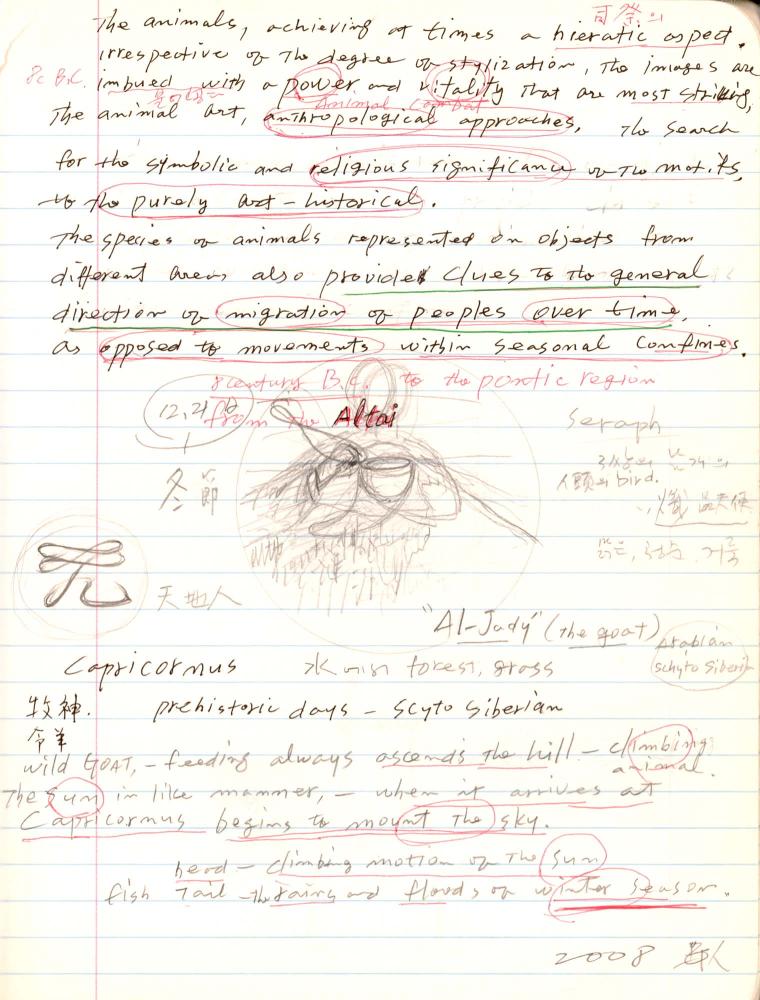 The animals, achieving at times a hieratic aspect.
irrespective of the degree of stylization, the images are
8c B.C. imbued with a power and vitality that are most striking,
Animal Combat
The animal art, anthropological approaches, the search
for the symbolic and religious significance of the motifs,
to the purely art-historical.
The species of animals represented on objects from
different areas also provide clues to the general
direction of migration of peoples over time,
as opposed to movements within seasonal confines.
8century B.C. to the pontic region
from the Altai
12,21
冬節
Seraph
의 bird.
天地人
"Al-Jady" (the goat)
Arabian
Schyto Siberian
Capricornus 水 forest, grass
牧神. prehistoric days - Scyto Siberian
wild GOAT, - feeding always ascends the hill - climbing
animal.
The Sun in like manner, - when it arrives at
Capricornus begins to mount the sky.
head - climbing motion of the Sun
fish Tail - the rains and floods of winter season.
2008